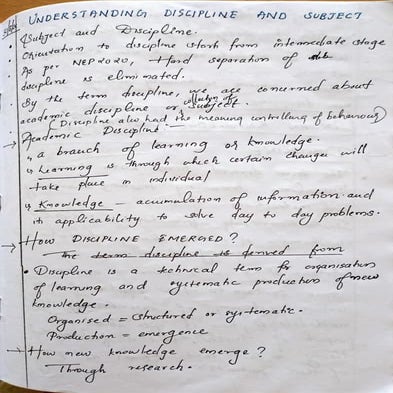 UNDERSTANDING DISCIPLINE AND SUBJECT
• Subject and Discipline.
Orientation to discipline start from intermediate stage
As per NEP 2020, Hard separation of sub
discipline is eliminated.
By the term discipline, we are concerned about
collection of
academic discipline or subject.
(Discipline also had the meaning controlling of behaviour)
→ Academic Discipline:-
a branch of learning or knowledge.
Learning is through which certain changes will
take place in individual
Knowledge - accumulation of information and
its applicability to solve day to day problems.
→ HOW DISCIPLINE EMERGED?
The term discipline is derived from
• Discipline is a technical term for organisation
of learning and systematic production of new
knowledge.
Organised = structured or systematic.
Production = emergence
→ How new knowledge emerge?
Through research.